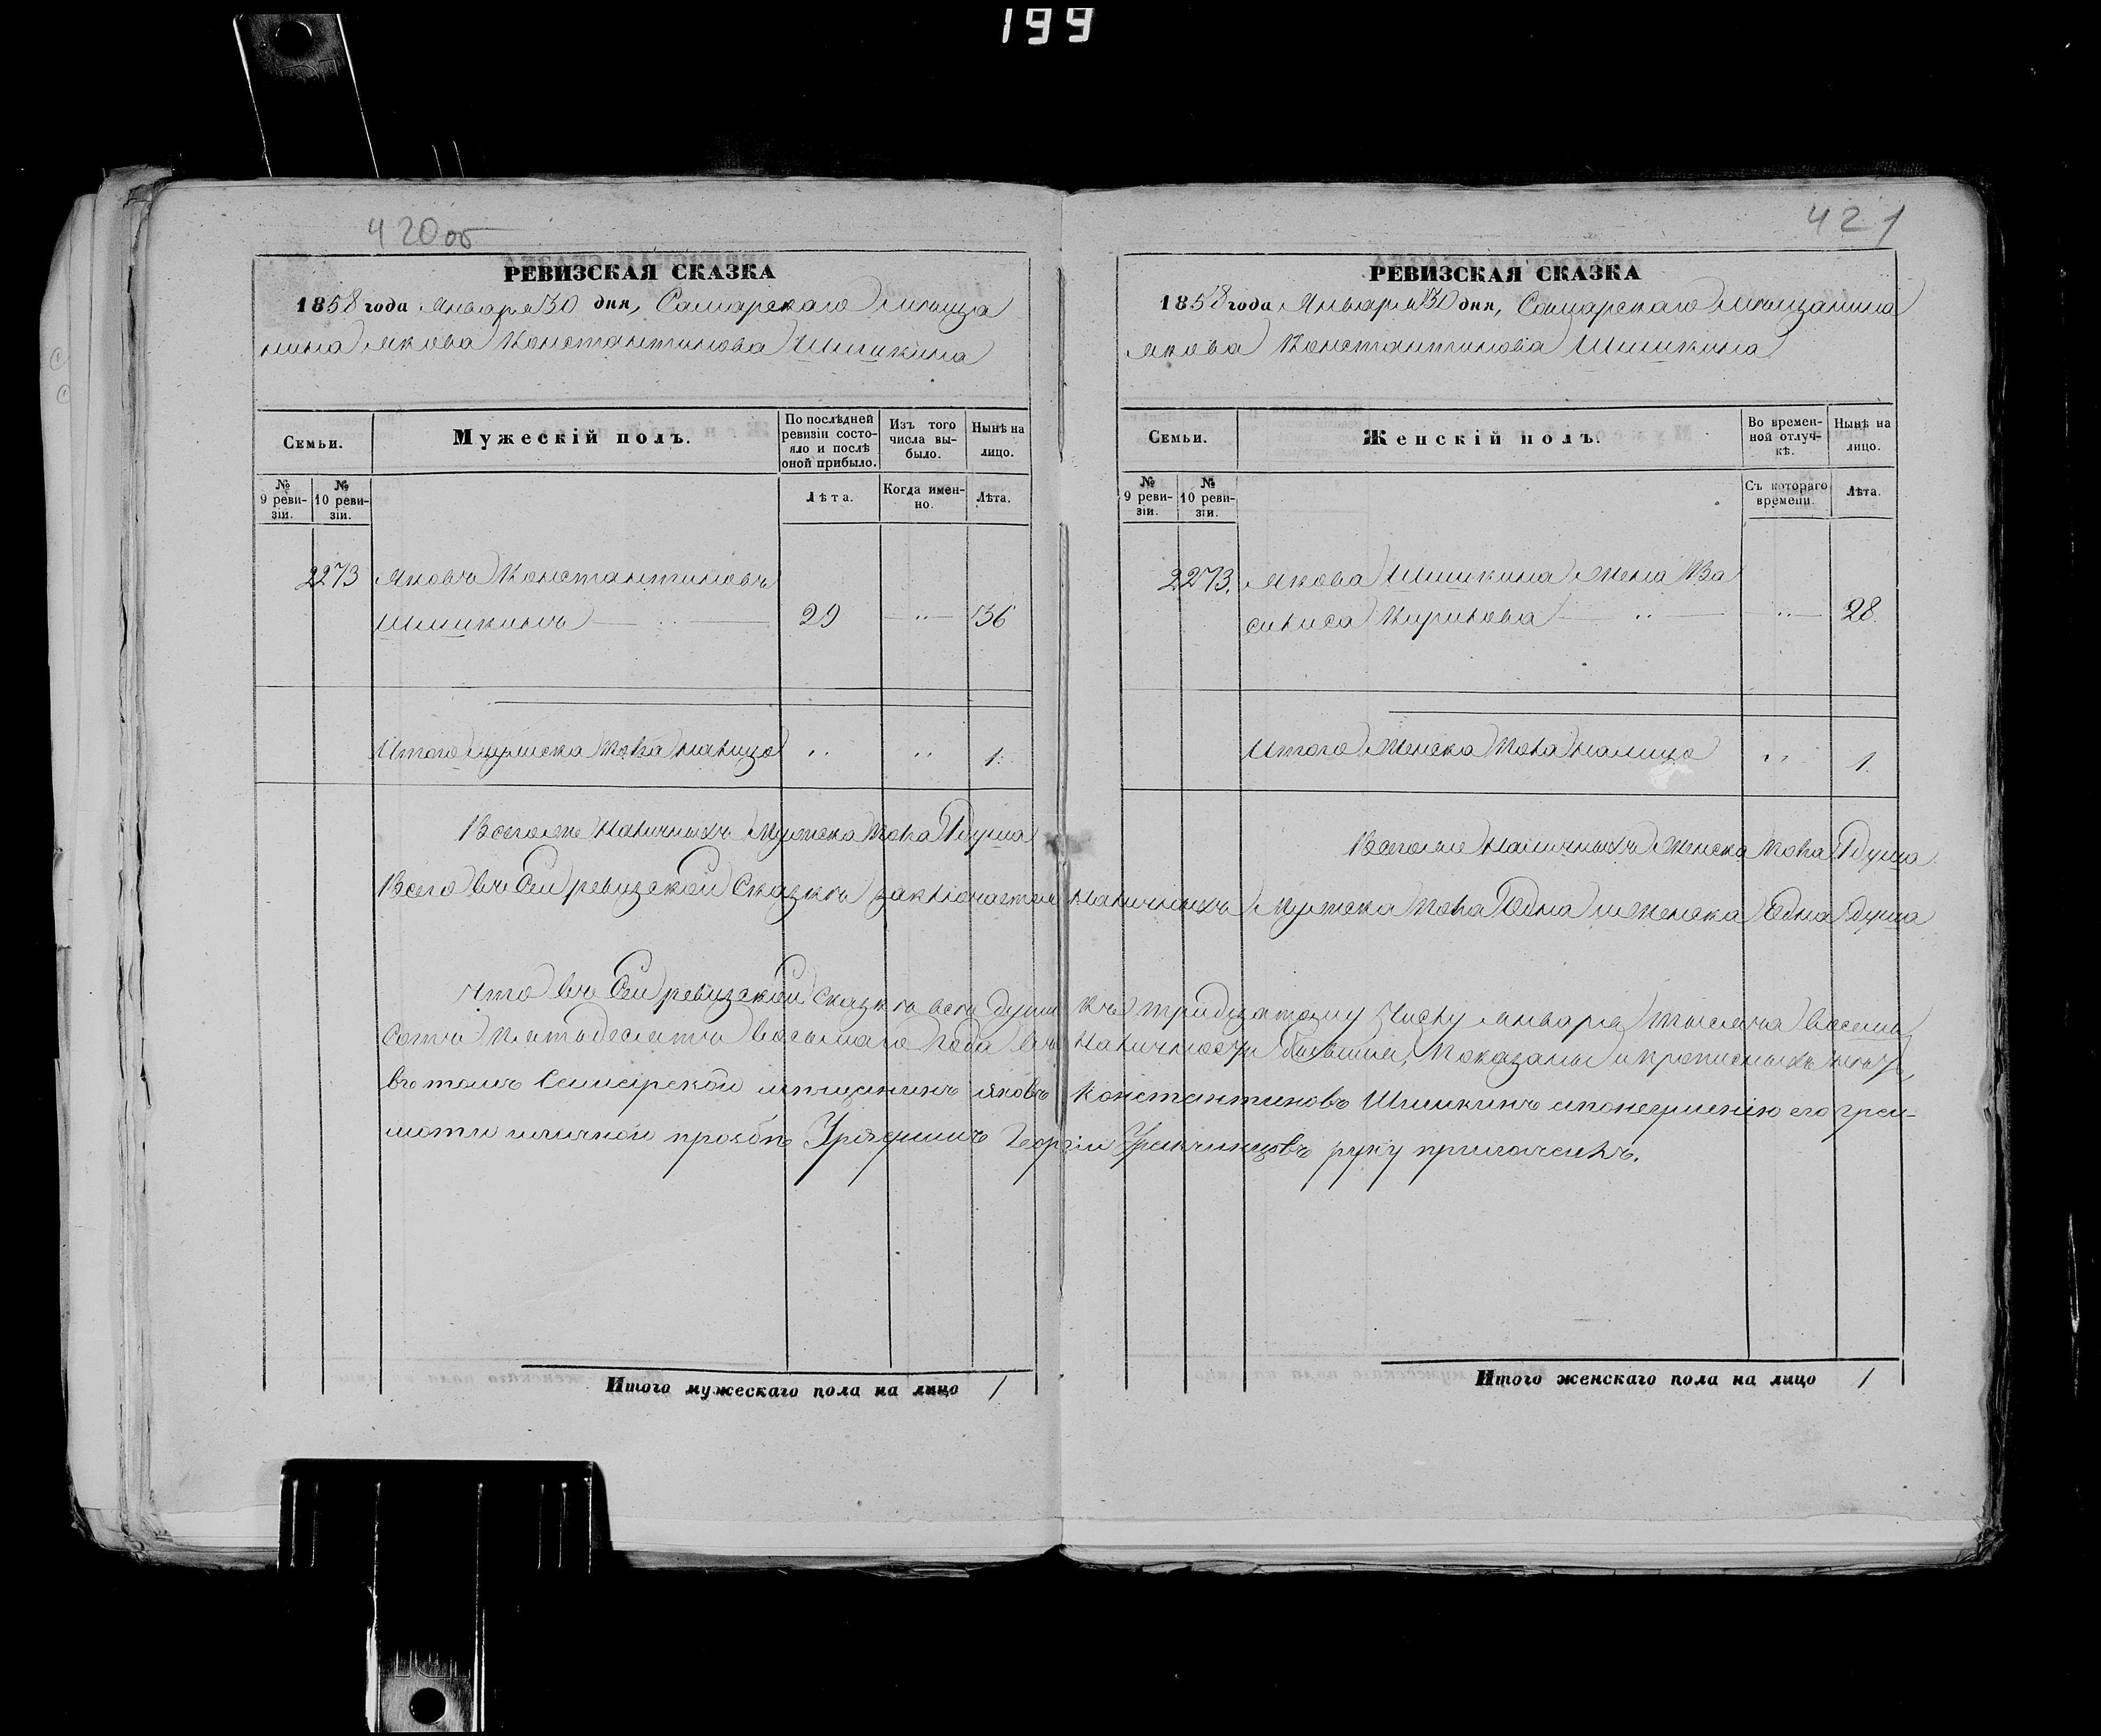 199
420об
РЕВИЗСКАЯ СКАЗКА
1858 года Января 30 дня, Самарскаго мѣща
нина Якова Константинова Шишкина
Семьи.
Мужескій полъ.
По послѣдней ревизіи состояло и послѣ оной прибыло.
Изъ того числа выбыло.
Нынѣ на лицо.
№ 9 ревизіи.
№ 10 ревизіи.
Лѣта.
Когда именно.
Лѣта.
2273 Яковъ Константиновъ
Шишкинъ 29 36
Итого мужеска пола налицо 1.
Всего же наличныхъ мужеска пола 1 душа
421
РЕВИЗСКАЯ СКАЗКА
1858 года Января 30 дня, Самарскаго мѣщанина
Якова Константинова Шишкина
Семьи.
Женскій полъ.
Во временной отлучкѣ.
Нынѣ на лицо.
№ 9 ревизіи.
№ 10 ревизіи.
Съ котораго времени.
Лѣта.
2273. Якова Шишкина жена Ва
силиса Кирилова 28.
Итого женска пола налицо 1.
Всего же наличныхъ женска пола 1 душа
Всего въ сей ревизской сказкѣ заключается наличныхъ мужеска пола одна и женска одна душа
Что въ сей ревизской сказкѣ всѣ души къ тридцатому числу января тысяча восемь
сотъ пятьдесятъ восьмаго года въ наличности бывшия, показаны и прописныхъ нѣтъ,
въ томъ Самарской мѣщанинъ Яковъ Константиновъ Шишкинъ а по неумѣнію его гра-
моти и личной прозбѣ Георгій руку приложилъ.
Итого мужескаго пола на лицо 1
Итого женскаго пола на лицо 1